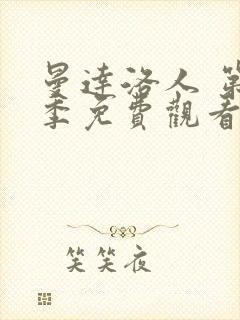 曼達洛人 第
季免費觀看
笑笑夜